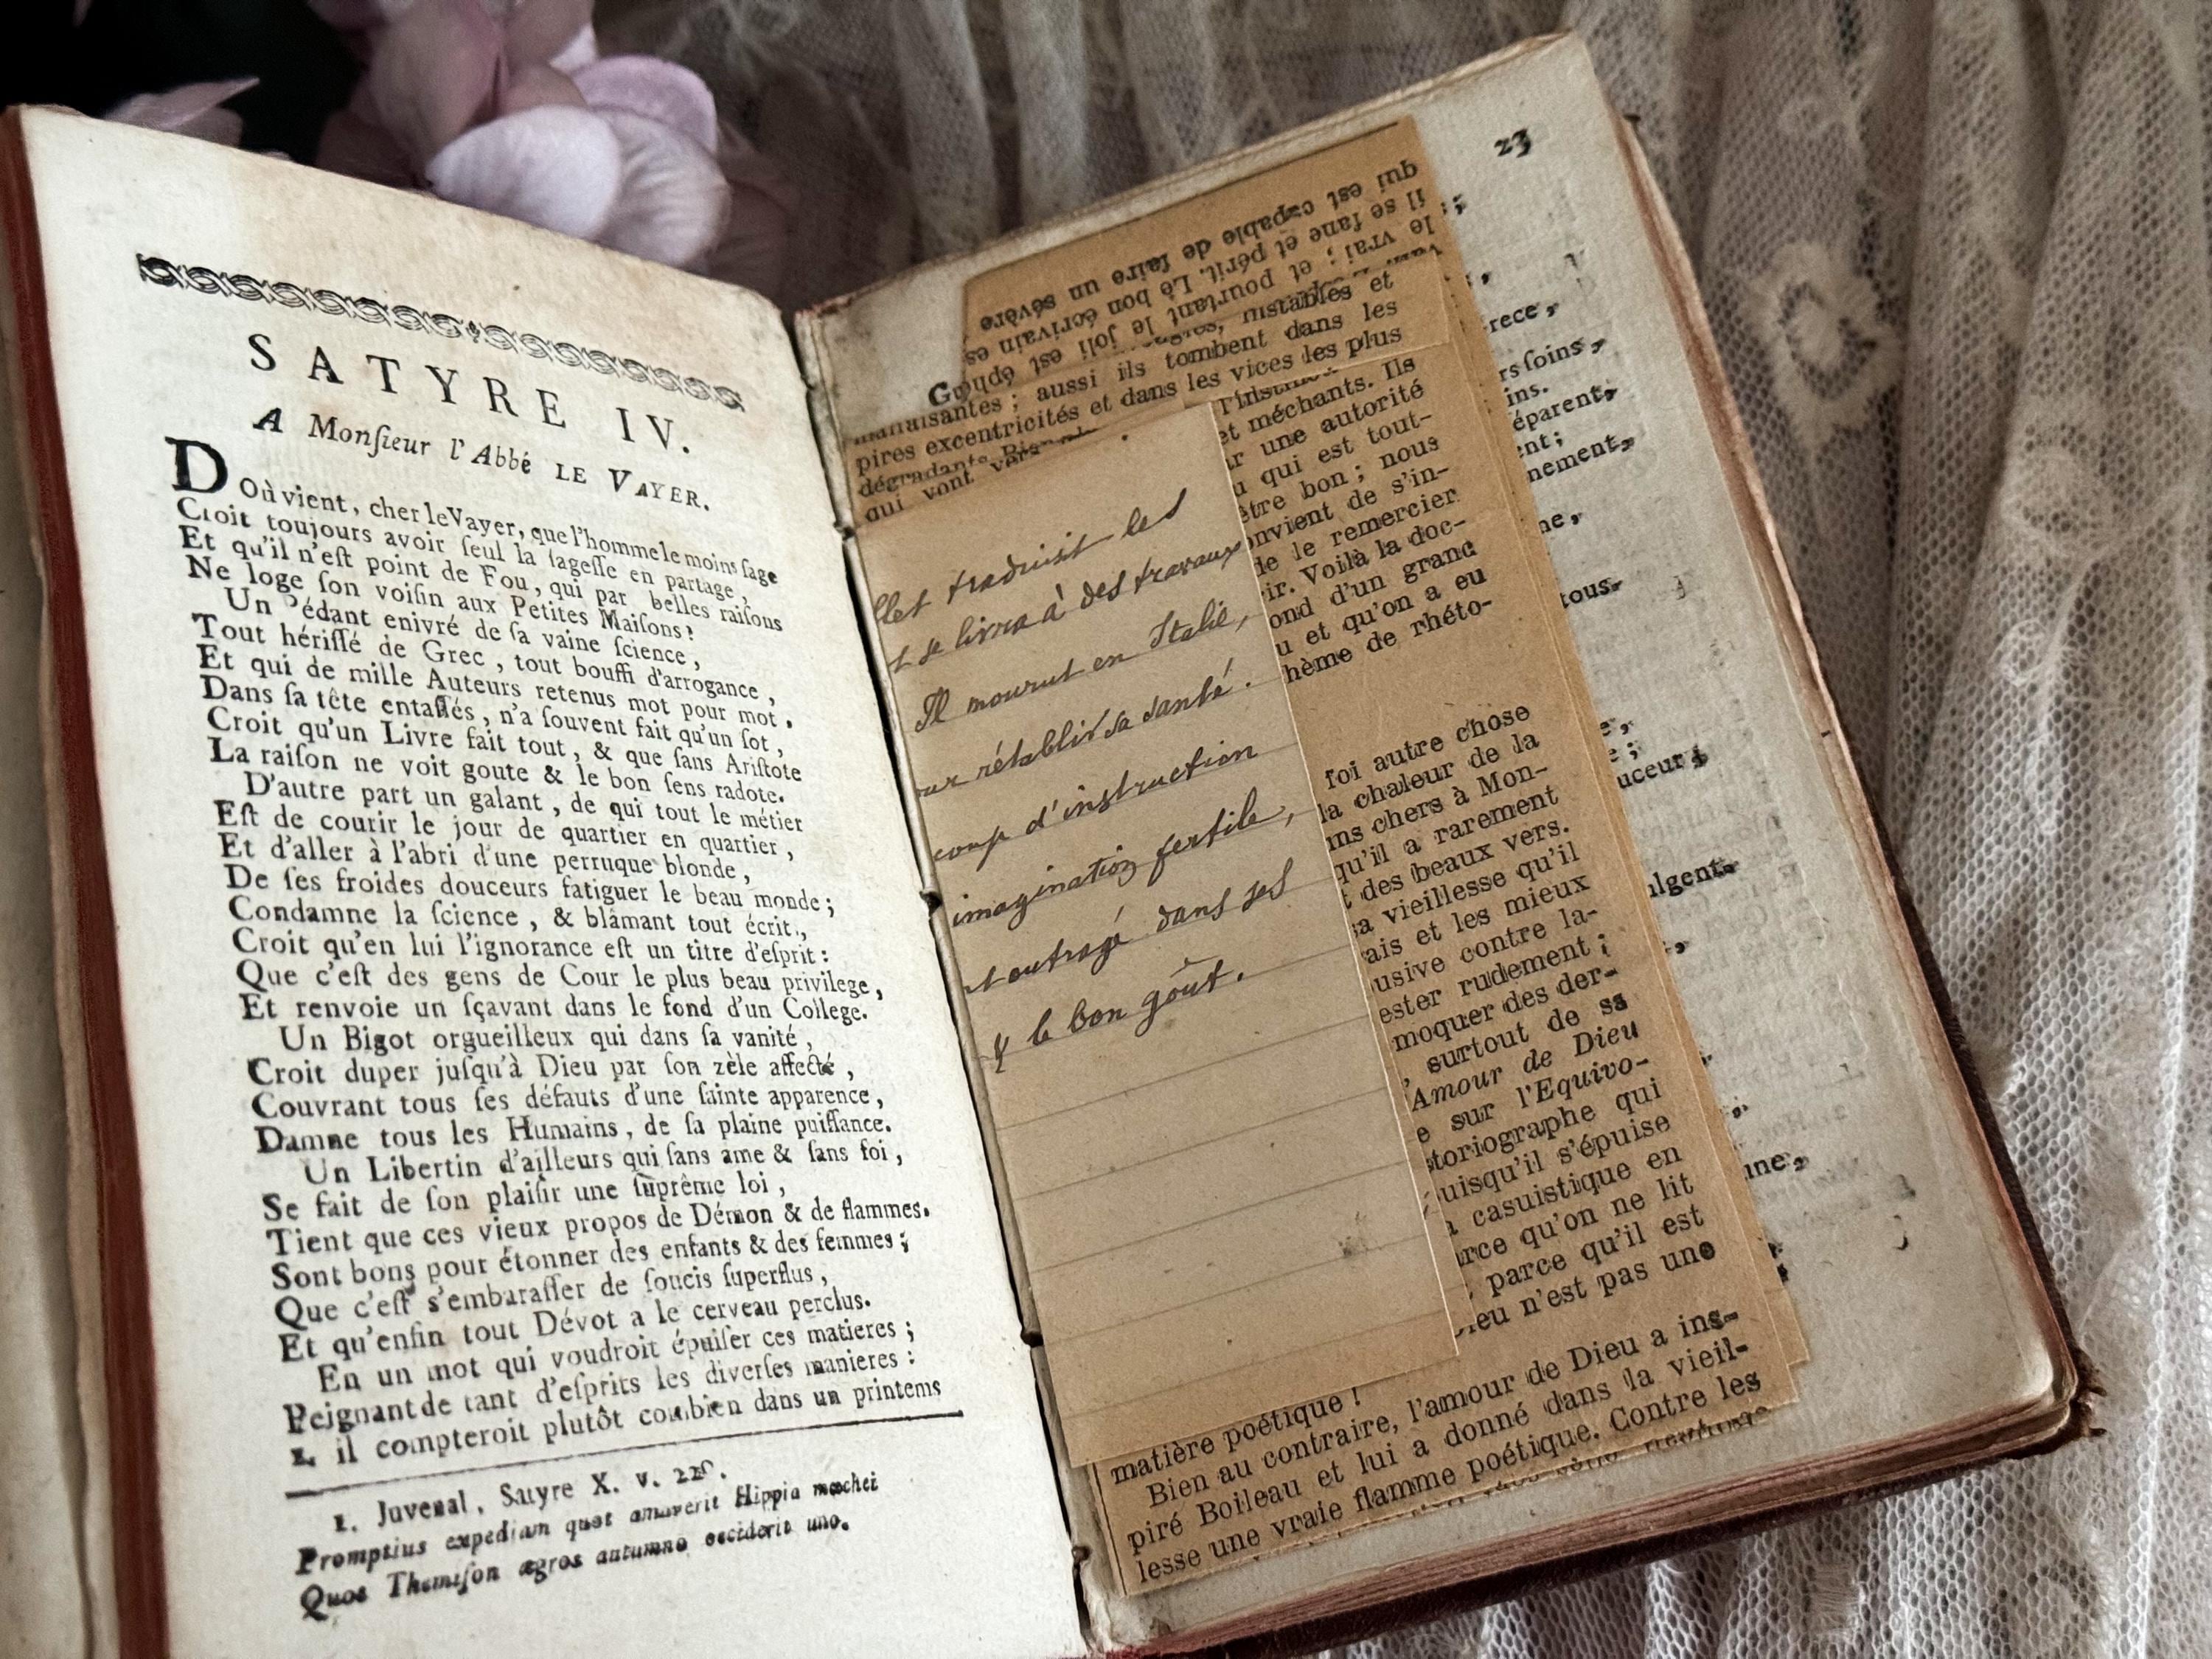 SATYRE IV.
A Monſieur l'Abbé LE VAYER.
D'Où vient, cher le Vayer, que l'homme le moins ſage
Croit toujours avoir ſeul la ſageſſe en partage,
Et qu'il n'eſt point de Fou, qui par belles raiſons
Ne loge ſon voiſin aux Petites Maiſons?
Un Pédant enivré de ſa vaine ſcience,
Tout hériſſé de Grec, tout bouffi d'arrogance,
Et qui de mille Auteurs retenus mot pour mot.
Dans ſa tête entaſſés, n'a ſouvent fait qu'un ſot,
Croit qu'un Livre fait tout, & que ſans Ariſtote
La raiſon ne voit goute & le bon ſens radote.
D'autre part un galant, de qui tout le métier
Eſt de courir le jour de quartier en quartier,
Et d'aller à l'abri d'une perruque blonde,
De ſes froides douceurs fatiguer le beau monde;
Condamne la ſcience, & blâmant tout écrit,
Croit qu'en lui l'ignorance eſt un titre d'eſprit:
Que c'eſt des gens de Cour le plus beau privilege,
Et renvoie un ſçavant dans le fond d'un College.
Un Bigot orgueilleux qui dans ſa vanité,
Croit duper juſqu'à Dieu par ſon zèle affecté,
Couvrant tous ſes défauts d'une ſainte apparence,
Damne tous les Humains, de ſa plaine puiſſance.
Un Libertin d'ailleurs qui ſans ame & ſans foi,
Se fait de ſon plaiſir une ſuprême loi,
Tient que ces vieux propos de Démon & de flammes.
Sont bons pour étonner des enfants & des femmes;
Que c'eſt s'embaraſſer de ſoucis ſuperflus,
Et qu'enfin tout Dévot a le cerveau perclus.
En un mot qui voudroit épuiſer ces matieres;
Peignant de tant d'eſprits les diverſes manieres:
1. il compteroit plutôt combien dans un printems
1. Juvenal, Satyre X. v.
Promptius expediam quot amaverit Hippia mœchei
Quos Themiſon ægros autumno occiderit uno.
23
qui est capable de faire un sévère
il se fane et périt. Le bon écrivain es
le vrai; et pourtant le joli est éph
instables et
malfaisantes; aussi ils tombent dans les
pires excentricités et dans les vices les plus
dégradants.
qui vont vers
llet traduisit les
t se livra à des travaux
Il mourut en Italie,
our rétablir sa santé.
coup d'instruction
imagination fertile,
t outragé dans ses
le bon goût.
et méchants. Ils
r une autorité
u qui est tout-
être bon; nous
onvient de s'in-
de le remercier
ir. Voilà la doc-
ond d'un grand
u et qu'on a eu
hème de rhéto-
foi autre chose
la chaleur de la
ns chers à Mon-
qu'il a rarement
t des beaux vers.
sa vieillesse qu'il
ais et les mieux
usive contre la-
ester rudement;
moquer des der-
, surtout de sa
Amour de Dieu
e sur l'Equivo-
storiographe qui
uisqu'il s'épuise
a casuistique en
arce qu'on ne lit
, parce qu'il est
ieu n'est pas une
matière poétique!
Bien au contraire, l'amour de Dieu a ins-
piré Boileau et lui a donné dans la vieil-
lesse une vraie flamme poétique. Contre les
rece,
rs ſoins,
ins.
éparent,
ent;
nement,
ne,
tous.
e,
e;
uceur;
ulgent.
nne,